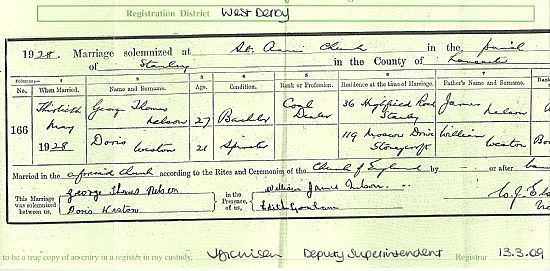 Registration District West Derby
1928. Marriage solemnized at St. Anne's Church in the Parish
of Stanley in the County of Lancaster
Columns:— 1 2 3 4 5 6 7
No. When Married. Name and Surname. Age. Condition. Rank or Profession. Residence at the time of Marriage. Father's Name and Surname. Ran
166 Thirtieth May 1928 George Thomas Nelson 27 Bachelor Coal Dealer 36 Highfield Road Stanley James Nelson
Doris Weston 21 Spinster 119 Moscow Drive Stoneycroft William Weston
Married in the aforesaid Church according to the Rites and Ceremonies of the Church of England by or after
This Marriage was solemnized between us, George Thomas Nelson Doris Weston in the Presence of us, William James Nelson
to be a true copy of an entry in a register in my custody. Deputy Superintendent Registrar 13.3.09